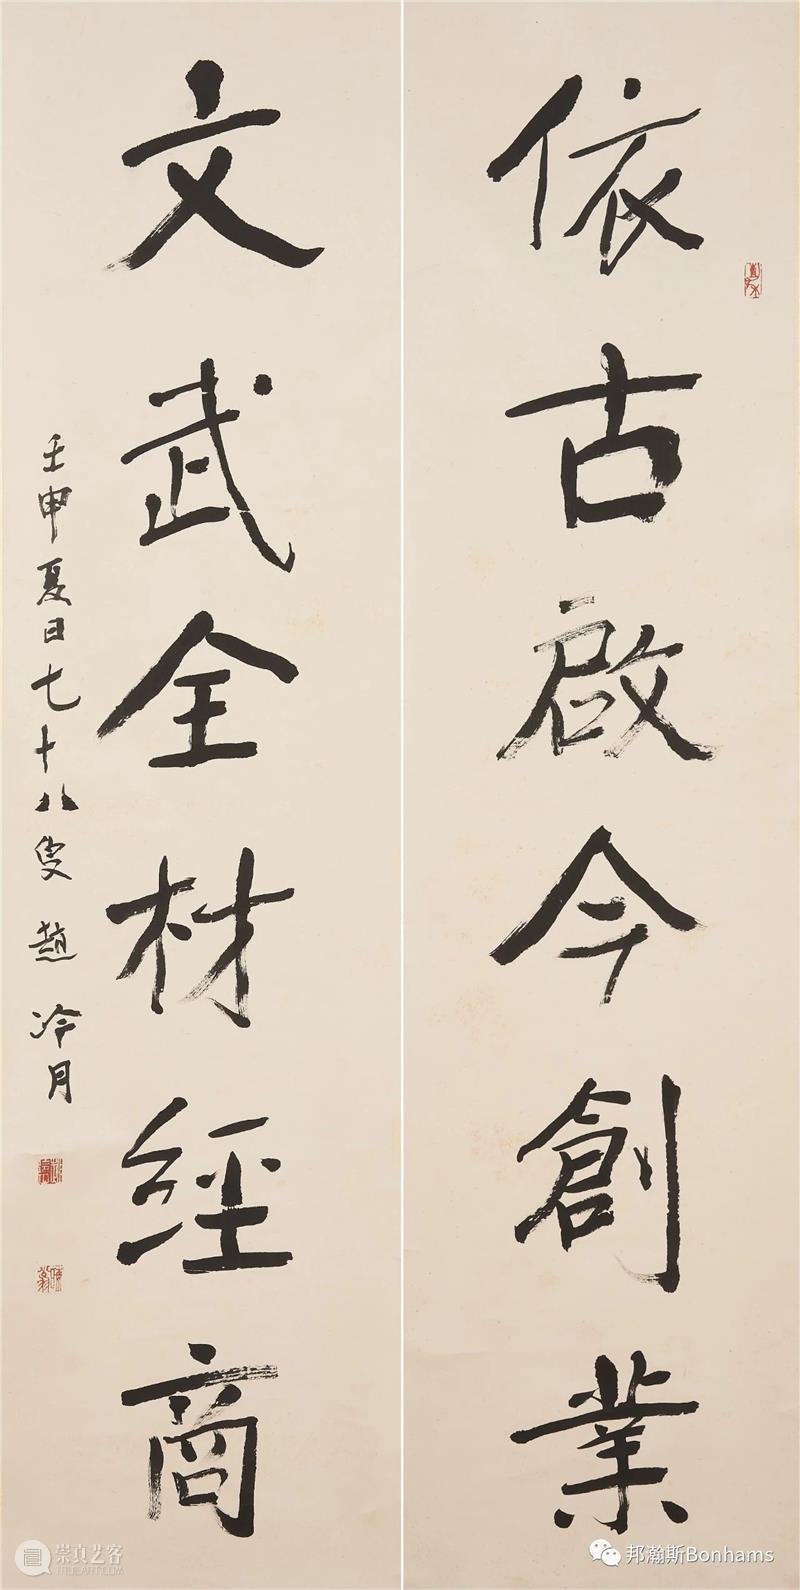 依古啟今創業
文武全材經商
壬申夏日七十八叟趙冷月
崇真艺客
TRUEART.COM
邦瀚斯Bonhams